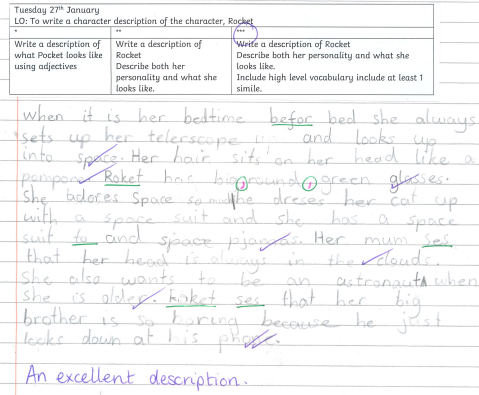 Tuesday 27th January
LO: To write a character description of the character, Rocket
* ** ***
Write a description of what Pocket looks like using adjectives
Write a description of Rocket
Describe both her personality and what she looks like.
Write a description of Rocket
Describe both her personality and what she looks like.
Include high level vocabulary include at least 1 simile.
When it is her bedtime befor bed she always
sets up her telerscope and looks up
into space. Her hair sits on her head like a
pompom. Roket has big, round, green glasses.
She adores Space so much she dreses her cat up
with a space suit and she has a space
suit to and space pjamas. Her mum ses
that her head is always in the clouds.
She also wants to be an astronaut when
she is older. Roket ses that her big
brother is so boring because he just
looks down at his phone.
An excellent description.